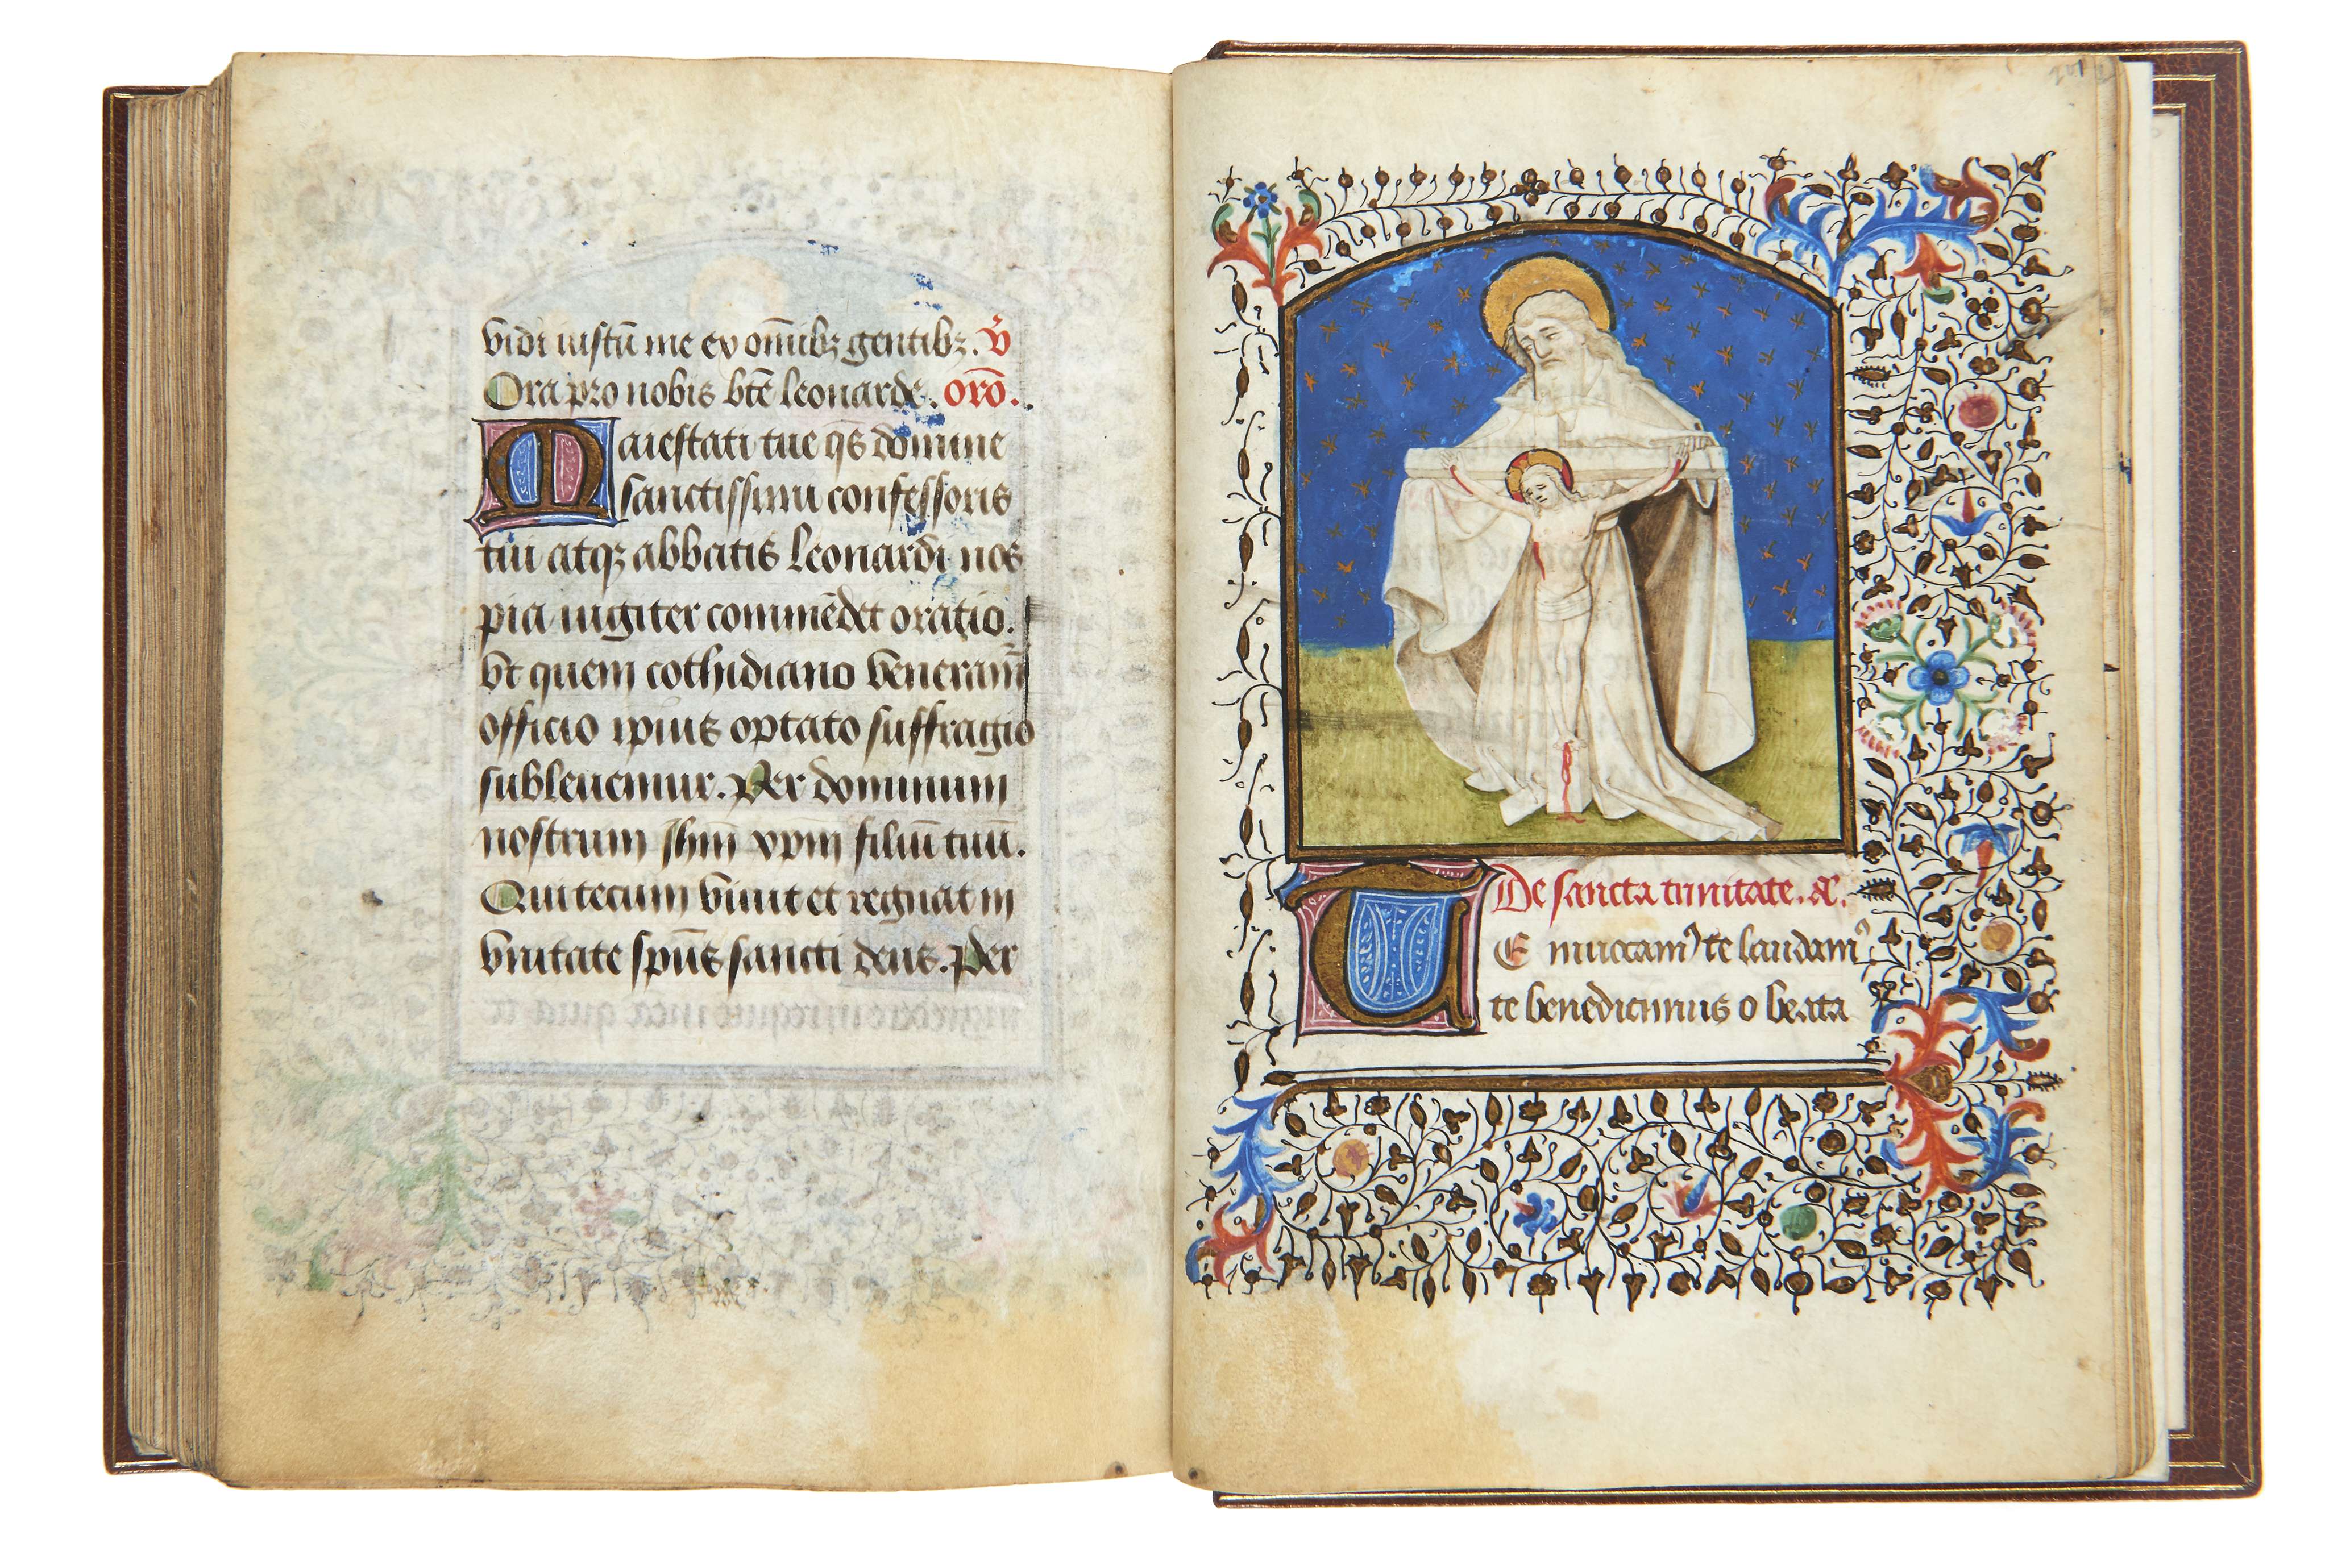 vidi iustū me ex om̄ibꝫ gentibꝫ. v̄
Ora pro nobis bt̄e leonarde. orō.
Maiestati tue qs̄ domine
sanctissimi confessoris
tui atqꝫ abbatis leonardi nos
pia iugiter com̄edet oratio.
vt quem cothidiano veneram̄
officio ipius optato suffragio
subleuemur. Per dominum
nostrum Ihm̄ xpm filiū tuū.
Qui tecum viuit et regnat in
vnitate spūs sancti deus. Per
De sancta trinitate. a͞.
TE inuocamꝰ te laudamꝰ
te benedicimus o beata